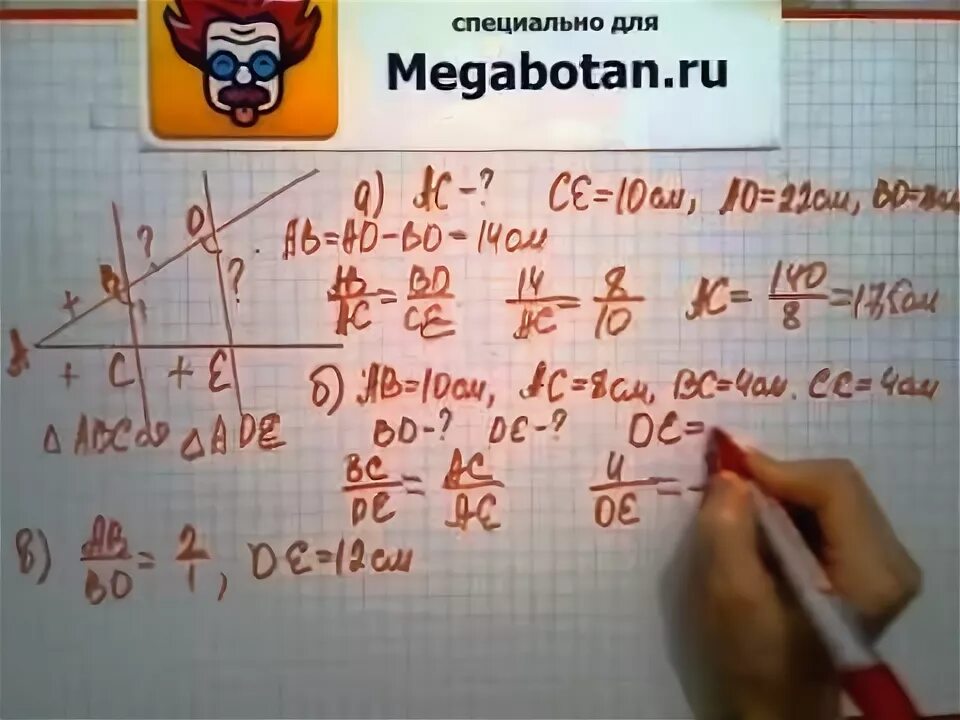 специально для
Megabotan.ru
а) AC-? CE=10см, AD=22см, BD=8см
AB=AD-BD=14см
AB/AC = BD/CE 14/AC = 8/10 AC = 140/8 = 17,5см
A B C D E ? ? + + +
б) AB=10см, AC=8см, BC=4см. CE=4см
△ABC ∞ △ADE
BD-? DE-? DE=
BC/DE = AC/AE 4/DE =
в) AB/BD = 2/1, DE=12см